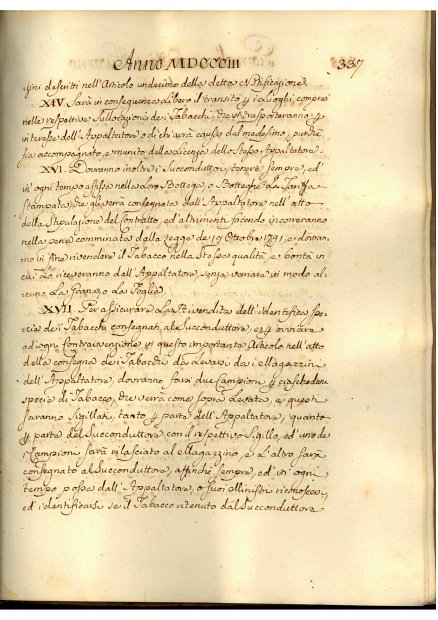 Anno MDCCCIII 337
gini descritti nell'Articolo undecimo della detta Notificazione.
XIV. Sarà in conseguenza libero il transito p i Luoghi, compresi
nelle respettive Sullocazioni de i Tabacchi, che vi trasporteranno p
interesse dell'Appaltatore, o di chi avrà causa dal medesimo, purchè
sia accompagnato, e munito della Licenza dello Stesso Appaltatore.
XVI. Dovranno inoltre i Succonduttori tenere sempre, ed
in ogni tempo affissa nella Loro Bottega, o Botteghe La Tariffa
Stampata, che gli verrà consegnata dall'Appaltatore nell'atto
della Stipulazione del Contratto, ed altrimenti facendo incorreranno
nella pena comminata dalla Legge de' 19 Ottobre 1791, e dovran-
no in fine rivendere il Tabacco nella Stessa qualità, e bontà in
cui Lo riceveranno dall'Appaltatore, senza variare in modo al-
cuno La Grana, o La Foglia.
XVII. Per assicurare La Rivendita dell'identifica spe-
cie de i Tabacchi consegnati al Succonduttore, e p ovviare
ad ogni Contravvenzione in questo importante Articolo nell'atto
della consegna de i Tabacchi da Levarsi da i Magazzini
dell'Appaltatore dovranno farsi due Campioni p ciascheduna
specie di Tabacco, che verrà come sopra Levata, e questi
saranno Sigillati, tanto p parte dell'Appaltatore, quanto
p parte del Succonduttore con il respettivo Sigillo, ed uno de
Campioni sarà rilasciato al Magazzino, e L'altro sarà
consegnato al Succonduttore, affinchè sempre, ed in ogni
tempo possa dall'Appaltatore, o suoi Ministri riconoscersi,
ed identificarsi se il Tabacco ritenuto dal Succonduttore